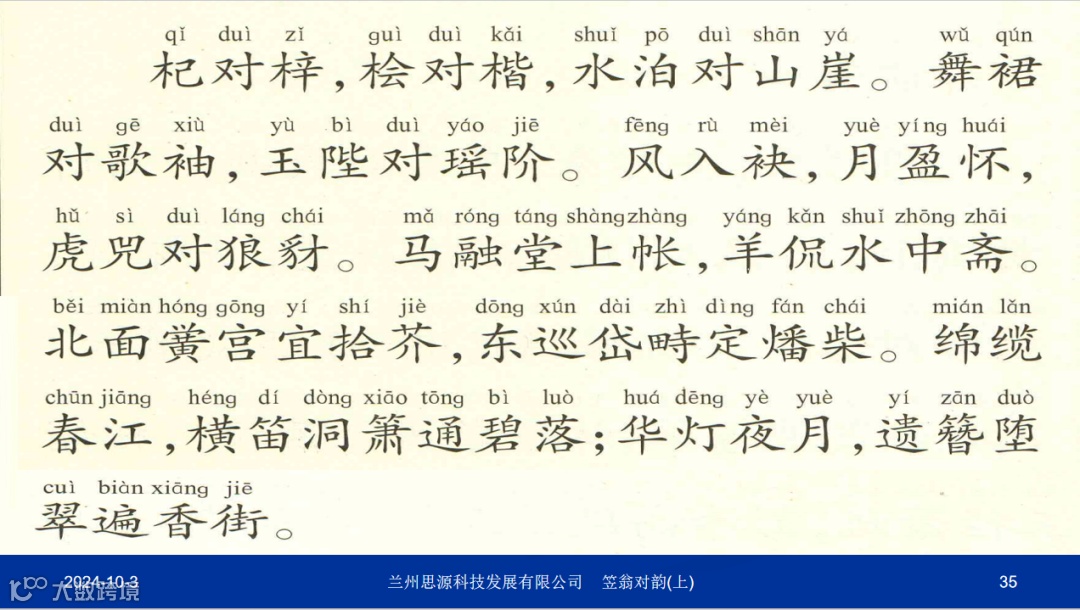 qǐ duì zǐ guì duì kǎi shuǐ pō duì shān yá wǔ qún
杞对梓，桧对楷，水泊对山崖。舞裙
duì gē xiù yù bì duì yáo jiē fēng rù mèi yuè yíng huái
对歌袖，玉陛对瑶阶。风入袂，月盈怀，
hǔ sì duì láng chái mǎ róng táng shàng zhàng yáng kǎn shuǐ zhōng zhāi
虎兕对狼豺。马融堂上帐，羊侃水中斋。
běi miàn hóng gōng yí shí jiè dōng xún dài zhì dìng fán chái mián lǎn
北面黉宫宜拾芥，东巡岱畤定燔柴。绵缆
chūn jiāng héng dí dòng xiāo tōng bì luò huá dēng yè yuè yí zān duò
春江，横笛洞箫通碧落；华灯夜月，遗簪堕
cuì biàn xiāng jiē
翠遍香街。
2024-10-3 兰州思源科技发展有限公司 笠翁对韵(上) 35
大数跨境